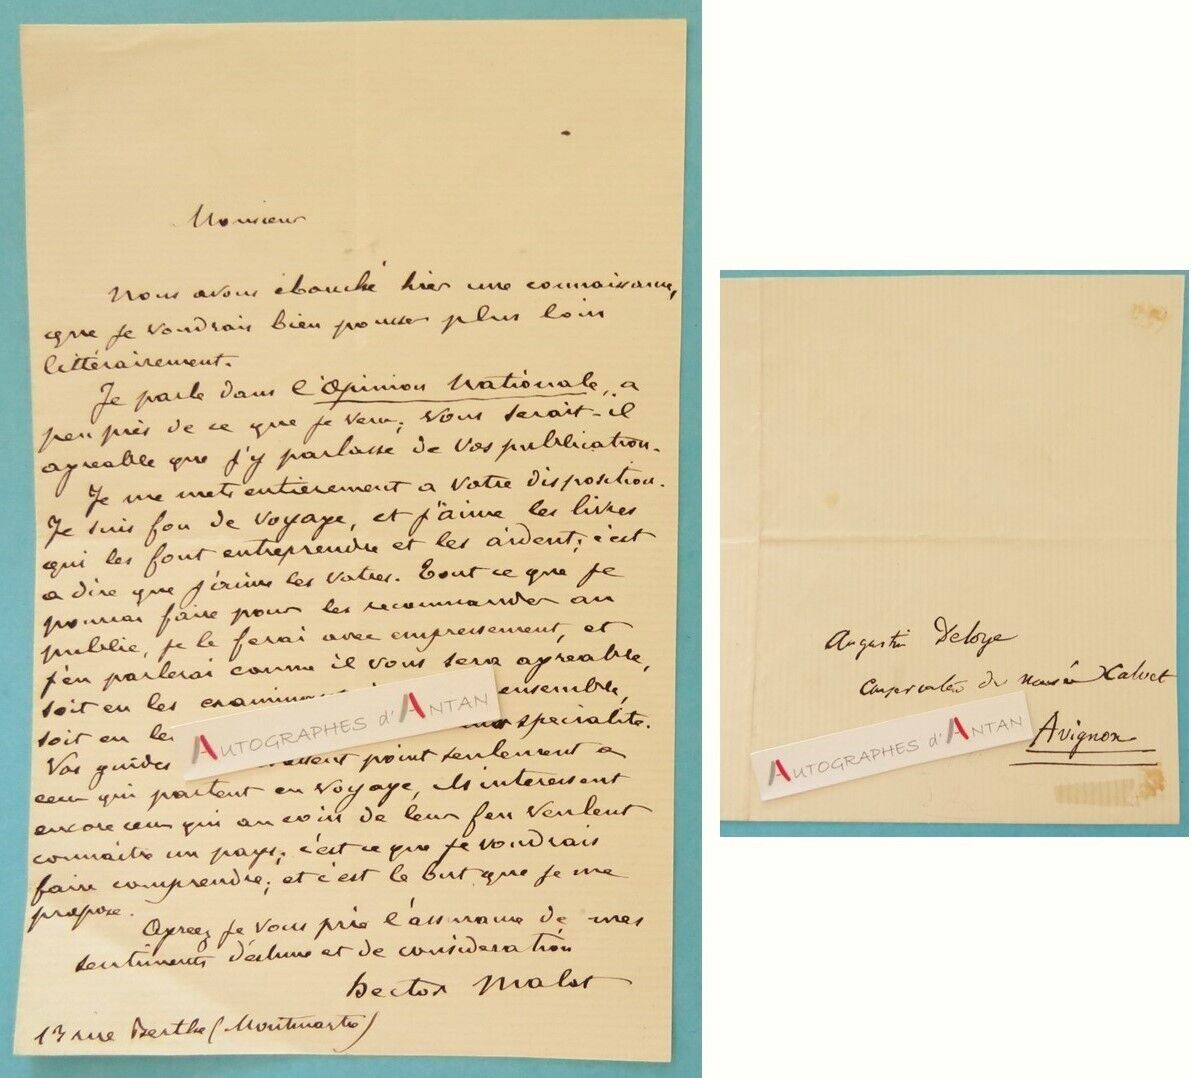 Monsieur
Nous avons ébauché hier une connaissance,
que je voudrais bien pousser plus loin
littérairement.
Je parle dans l'Opinion Nationale, a
peu près de ce que je veux; vous serait-il
agreable que j'y parlasse de vos publication.
Je me mets entièrement a votre disposition.
Je suis fou de voyage, et j'aime les livres
qui les font entreprendre et les aident; c'est
a dire que j'aime les votres. Tout ce que je
pourrai faire pour les recommander au
public, je le ferai avec empressement, et
j'en parlerai comme il vous sera agreable,
soit en les examinant ensemble,
soit en les specialité.
Vos guides point seulement a
ceux qui partent en voyage, ils interessent
encore ceux qui au coin de leur feu veulent
connaitre un pays; c'est ce que je voudrais
faire comprendre; et c'est le but que je me
propose.
Agreez je vous prie l'assurance de mes
sentiments d'estime et de consideration
Hector Malot
13 rue Berthe (Montmartre)
AUTOGRAPHES d'ANTAN
Augustin Deloye
Conservateur du musée Calvet
Avignon
AUTOGRAPHES d'ANTAN